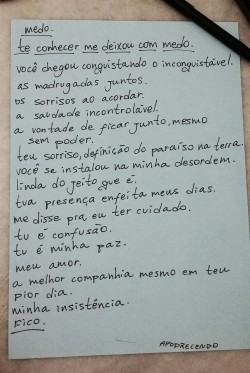 medo.
te conhecer me deixou com medo.
você chegou conquistando o inconquistável.
as madrugadas juntos.
os sorrisos ao acordar.
a saudade incontrolável.
a vontade de ficar junto, mesmo
sem poder.
teu sorriso, definição do paraíso na terra.
você se instalou na minha desordem.
linda do jeito que é.
tua presença enfeita meus dias.
me disse pra eu ter cuidado.
tu é confusão.
tu é minha paz.
meu amor.
a melhor companhia mesmo em teu
pior dia.
minha insistência.
FICO.
APODRECENDO